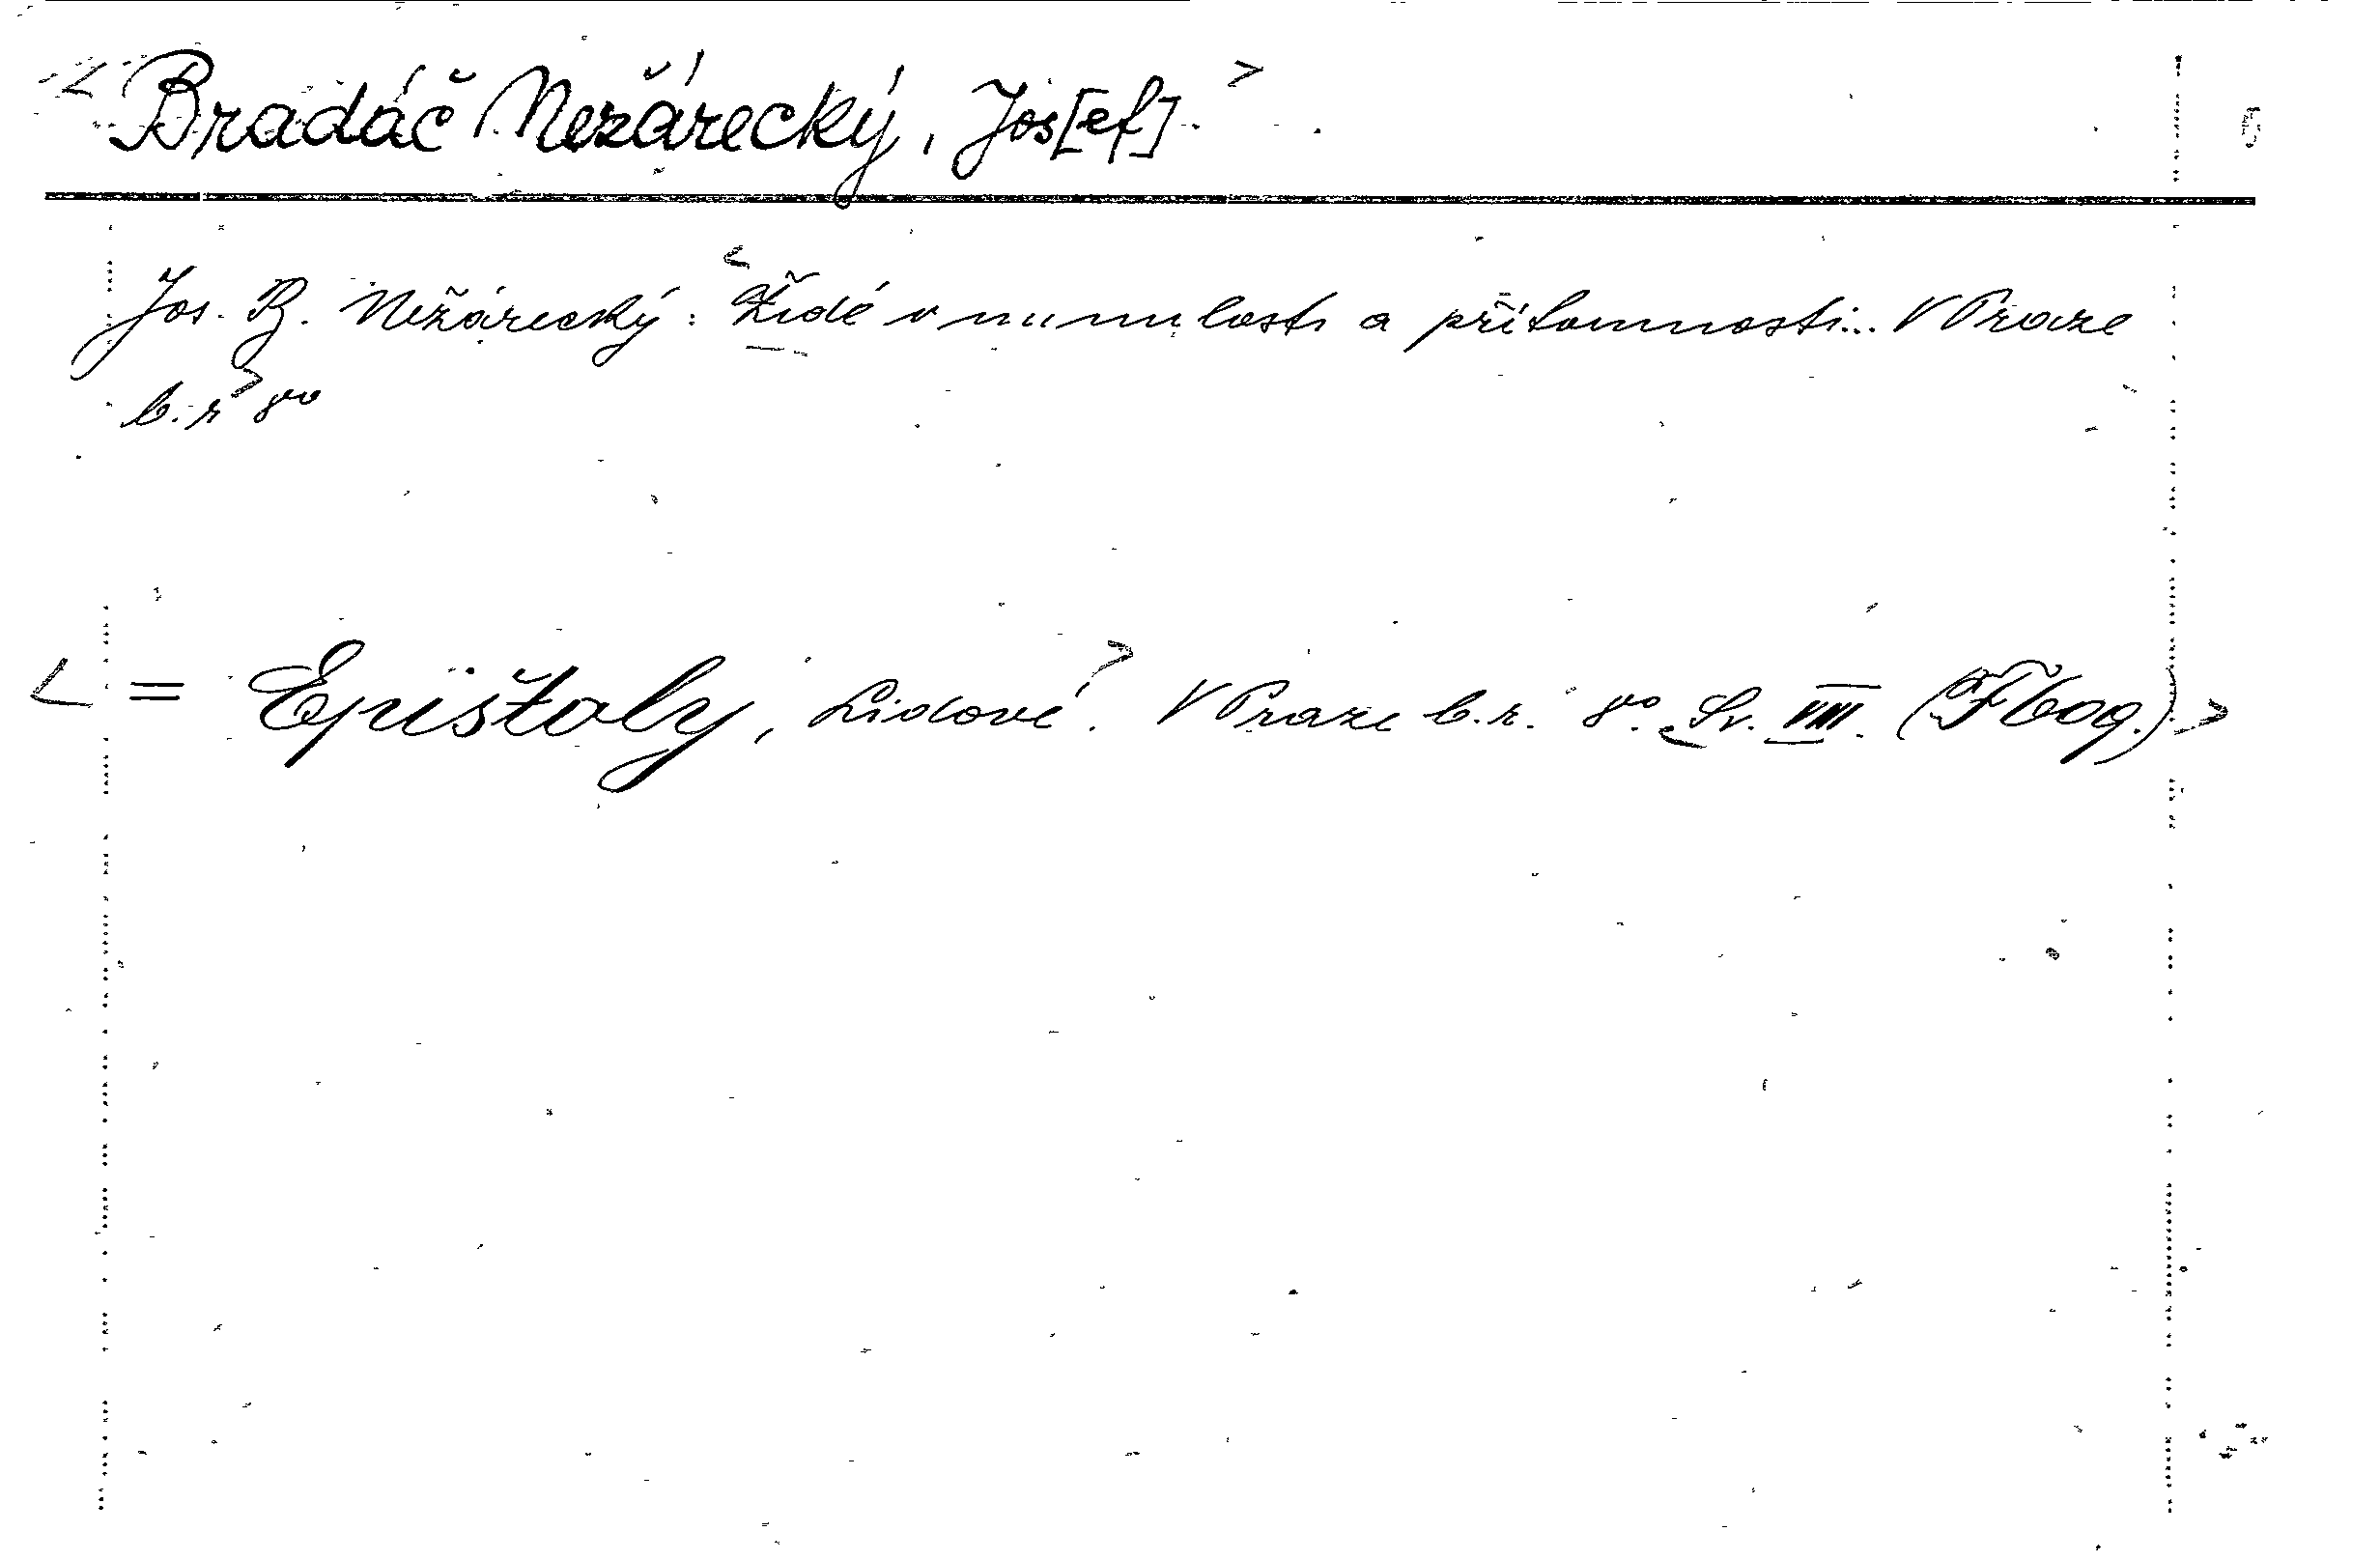 < Bradáč Nežárecký, Jos[ef]. >
Jos. B. Nežárecký: < Židé v minulosti a přítomnosti... V Praze
b.r > 8vo
< = Epištoly, Lidové > . V Praze b.r. 8vo. Sv. VIII.